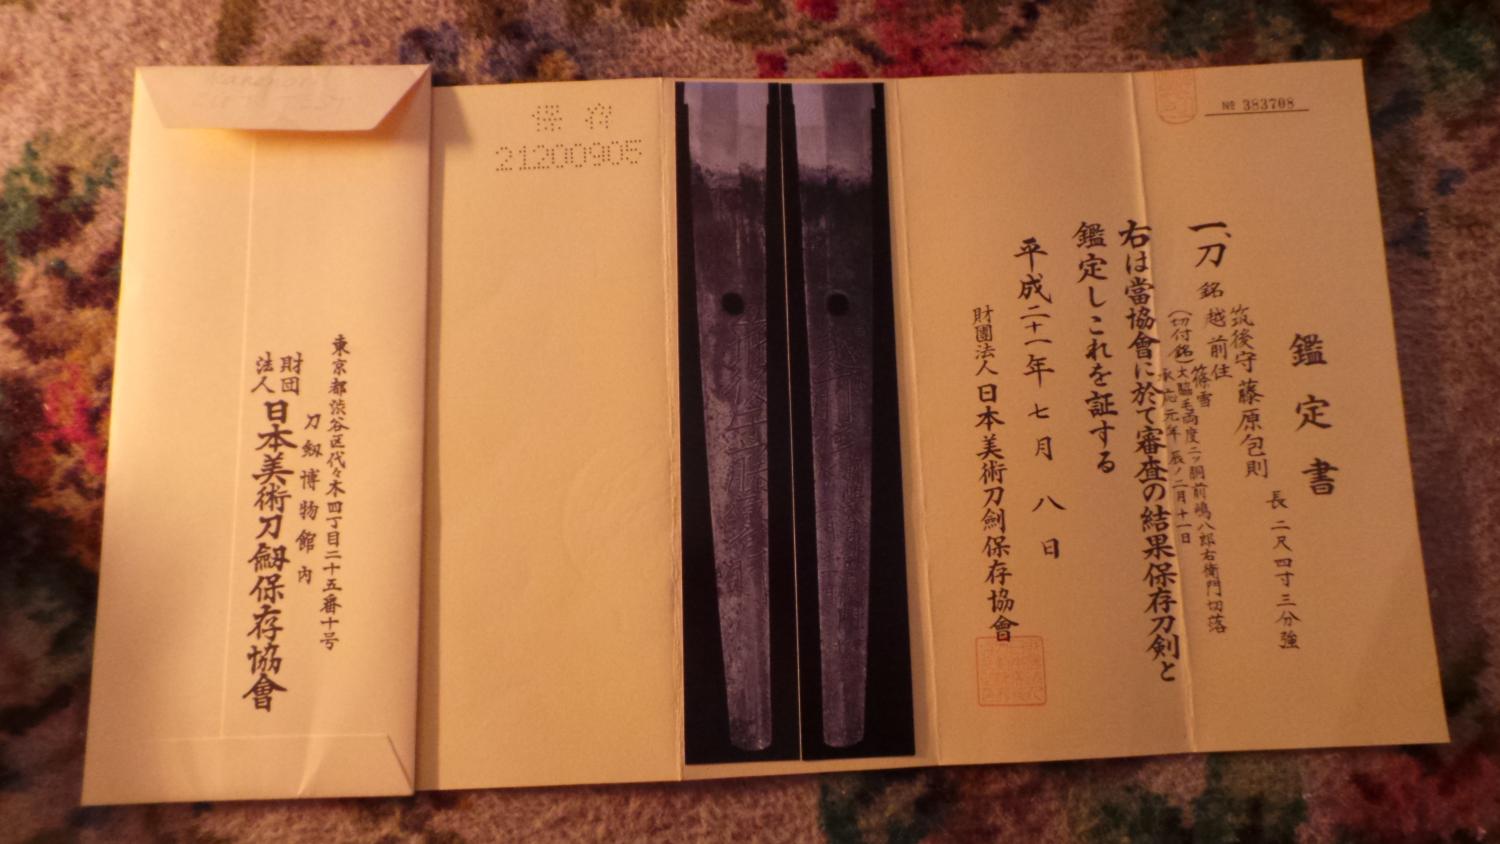 東京都渋谷区代々木四丁目二十五番十号
刀剱博物館内
財団法人
日本美術刀剱保存協會
保存
21200905
№ 383708
鑑定書
長二尺四寸三分強
一、刀 銘
筑後守藤原包則
越前住
篠雪
(切付銘)大脇毛両度二ッ胴前嶋八郎右衛門切落
承応元年辰ノ二月十一日
右は當協會に於て審査の結果保存刀剣と
鑑定しこれを証する
平成二十一年七月八日
財團法人日本美術刀劍保存協會